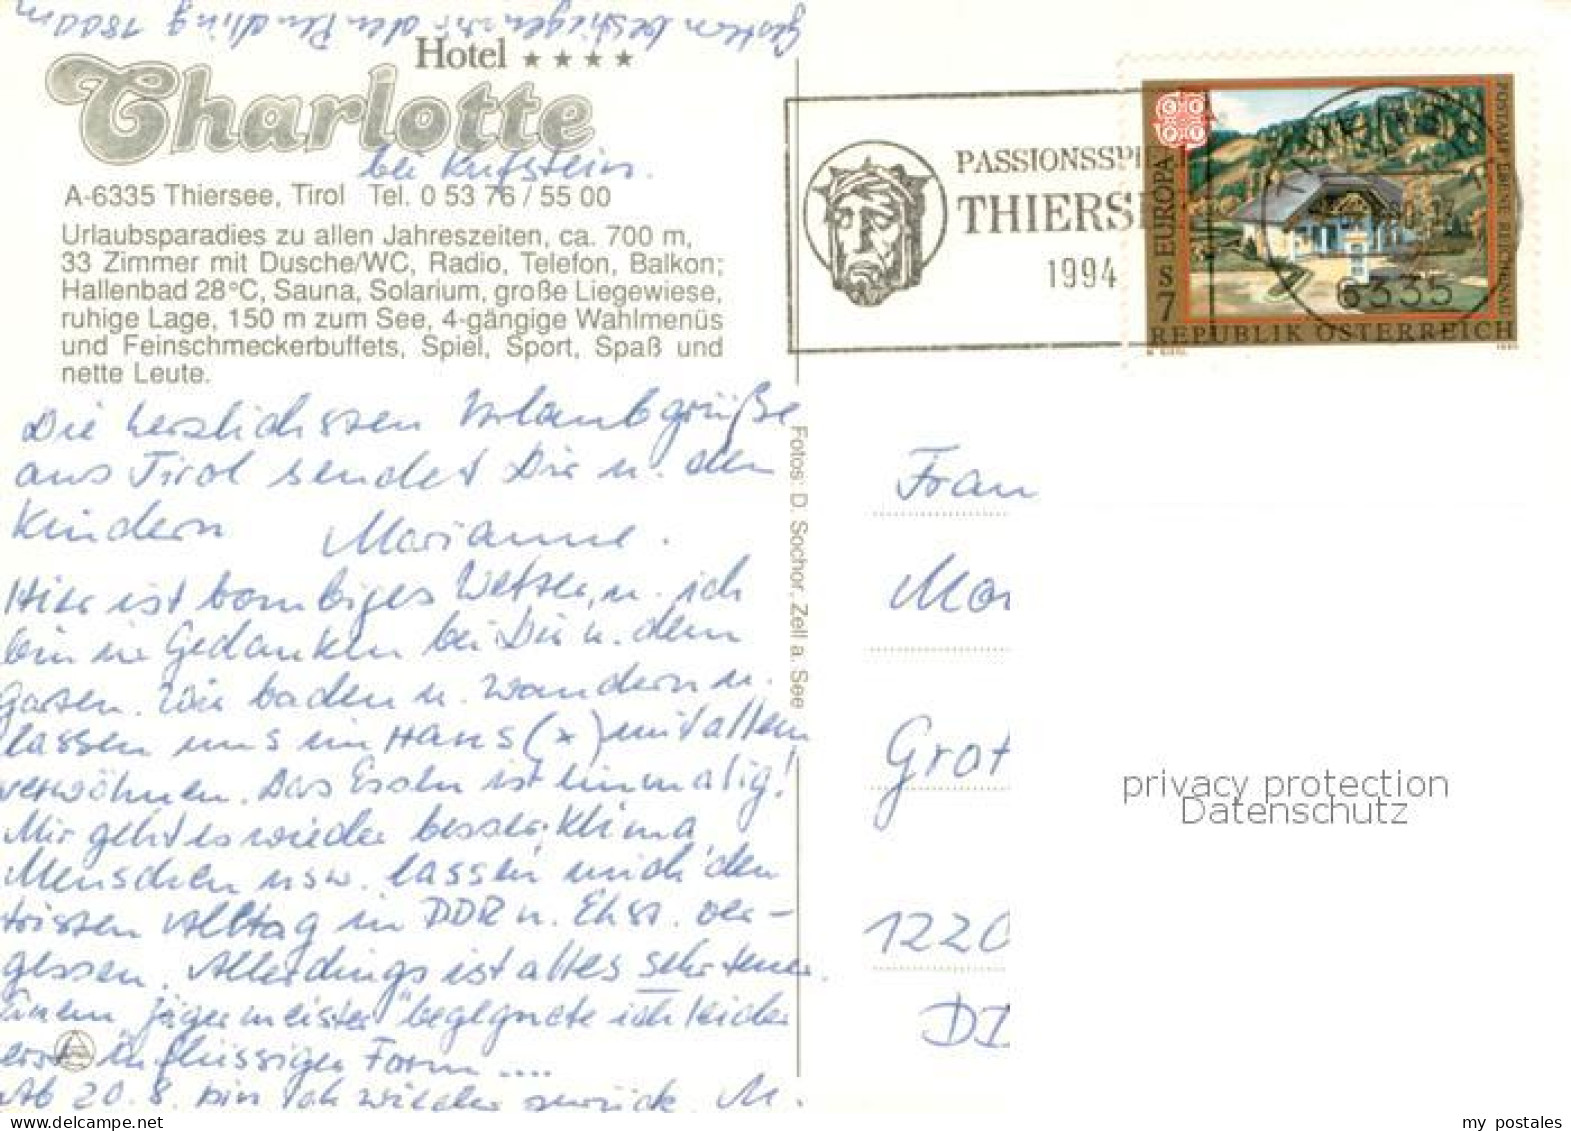 Gestern bestiegen wir den Pendling 1800 m
Hotel ★★★★
Charlotte
bei Kufstein.
A-6335 Thiersee, Tirol Tel. 0 53 76 / 55 00
Urlaubsparadies zu allen Jahreszeiten, ca. 700 m,
33 Zimmer mit Dusche/WC, Radio, Telefon, Balkon;
Hallenbad 28°C, Sauna, Solarium, große Liegewiese,
ruhige Lage, 150 m zum See, 4-gängige Wahlmenüs
und Feinschmeckerbuffets, Spiel, Sport, Spaß und
nette Leute.
Die herzlichsten Urlaubgrüße
aus Tirol sendet Dir u. den
Kindern Marianne.
Hier ist bombiges Wetter, u. ich
bin in Gedanken bei Dir u. dem
Garten. Wir baden u. wandern u.
lassen uns im Haus (x) mit allem
verwöhnen. Das Essen ist einmalig!
Mir geht es wieder besser; Klima
Menschen usw. lassen mich den
tristen Alltag in DDR u. Ehst. ver-
gessen. Allerdings ist alles sehr teuer.
Einem "Jägermeister" begegnete ich leider
erst in flüssiger Form ....
Ab 20.8. bin ich wieder zurück. M.
Fotos: D. Sochor, Zell a. See
PASSIONSSPI
THIERS
1994
6335
CEPT
EUROPA
S 7
POSTAMT EBENE REICHENAU
REPUBLIK ÖSTERREICH
1990
Frau
Mar
Grot
1220
DD
privacy protection
Datenschutz
my_postales